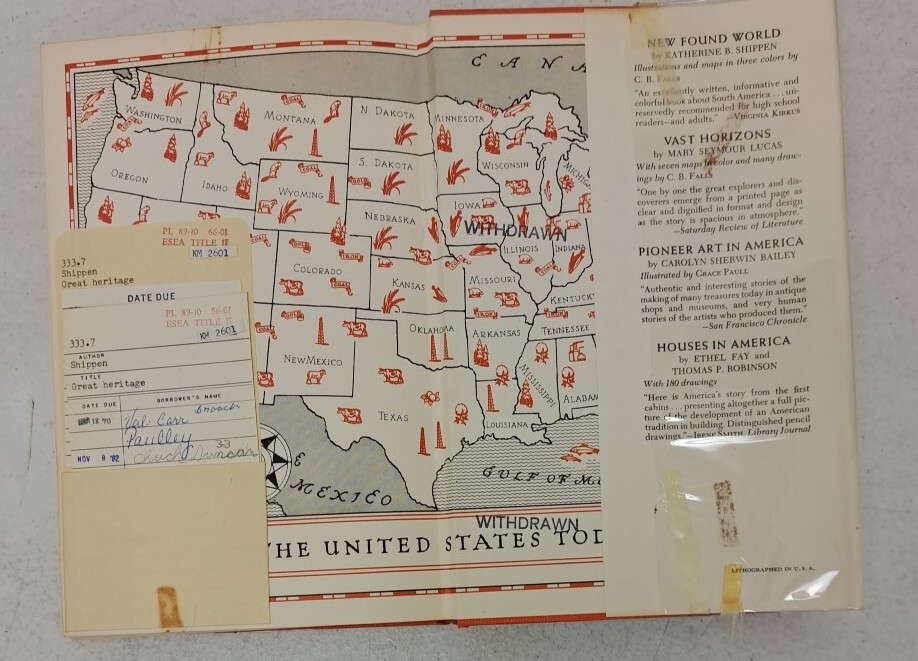 PL 89-10 66-02
ESEA TITLE II
KM 2601
333.7
Shippen
Great heritage
DATE DUE
PL 89-10 66-02
ESEA TITLE II
KM 2601
333.7
AUTHOR
Shippen
TITLE
Great heritage
DATE DUE
BORROWER'S NAME
MAR 12 '70
Val Carr
Broach
Paulley
33
NOV 8 '82
Chuck Duncan
CANA
WASHINGTON
MONTANA
N. DAKOTA
MINNESOTA
OREGON
IDAHO
S. DAKOTA
WISCONSIN
MICHIG
WYOMING
NEBRASKA
IOWA
WITHDRAWN
ILLINOIS
INDIANA
COAL
IRON
COLORADO
KANSAS
MISSOURI
KENTUCK
OKLAHOMA
ARKANSAS
TENNESSEE
NEW MEXICO
MISSISSIPPI
ALABAM
TEXAS
LOUISIANA
E
MEXICO
GULF OF M
WITHDRAWN
HE UNITED STATES TOD
NEW FOUND WORLD
by KATHERINE B. SHIPPEN
Illustrations and maps in three colors by
C. B. FALLS
"An excellently written, informative and
colorful book about South America . . . un-
reservedly recommended for high school
readers—and adults." —VIRGINIA KIRKUS
VAST HORIZONS
by MARY SEYMOUR LUCAS
With seven maps in color and many draw-
ings by C. B. FALLS
"One by one the great explorers and dis-
coverers emerge from a printed page as
clear and dignified in format and design
as the story is spacious in atmosphere."
—Saturday Review of Literature
PIONEER ART IN AMERICA
by CAROLYN SHERWIN BAILEY
Illustrated by GRACE PAULL
"Authentic and interesting stories of the
making of many treasures today in antique
shops and museums, and very human
stories of the artists who produced them."
—San Francisco Chronicle
HOUSES IN AMERICA
by ETHEL FAY and
THOMAS P. ROBINSON
With 180 drawings
"Here is America's story from the first
cabins . . . presenting altogether a full pic-
ture of the development of an American
tradition in building. Distinguished pencil
drawings"—IRENE SMITH, Library Journal
LITHOGRAPHED IN U. S. A.